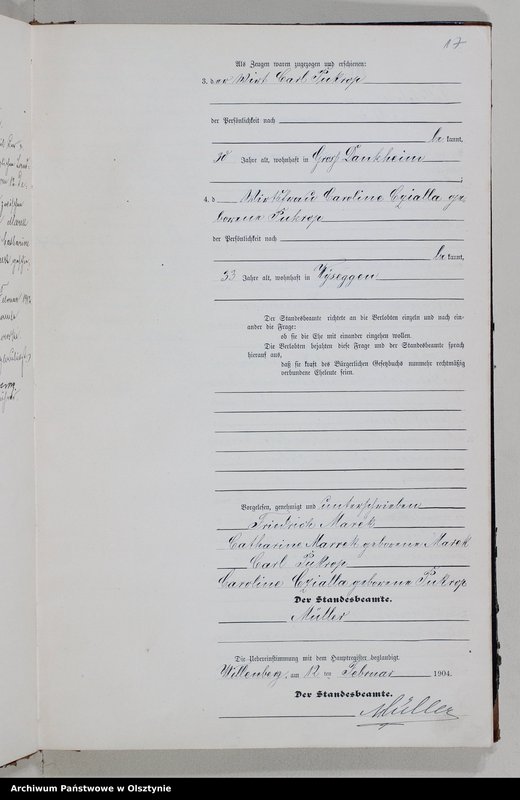 17
Als Zeugen waren zugezogen und erschienen:
3. der Wirt Carl Pukrop
der Persönlichkeit nach
be kannt,
38 Jahre alt, wohnhaft in Groß Dankheim
;
4. d Wirtsfrau Caroline Czialla ge-
borene Pukrop
der Persönlichkeit nach
be kannt,
33 Jahre alt, wohnhaft in Wyseggen
Der Standesbeamte richtete an die Verlobten einzeln und nach ein-
ander die Frage:
ob sie die Ehe mit einander eingehen wollen.
Die Verlobten bejahten diese Frage und der Standesbeamte sprach
hierauf aus,
daß sie kraft des Bürgerlichen Gesetzbuchs nunmehr rechtmäßig
verbundene Eheleute seien.
Vorgelesen, genehmigt und unterschrieben
Friedrich Marek
Catharine Marrek geborene Marek
Carl Pukrop
Caroline Czialla geborene Pukrop
Der Standesbeamte.
Müller
Die Uebereinstimmung mit dem Hauptregister beglaubigt.
Willenberg, am 12 ten Februar 1904.
Der Standesbeamte.
Müller
Archiwum Państwowe w Olsztynie